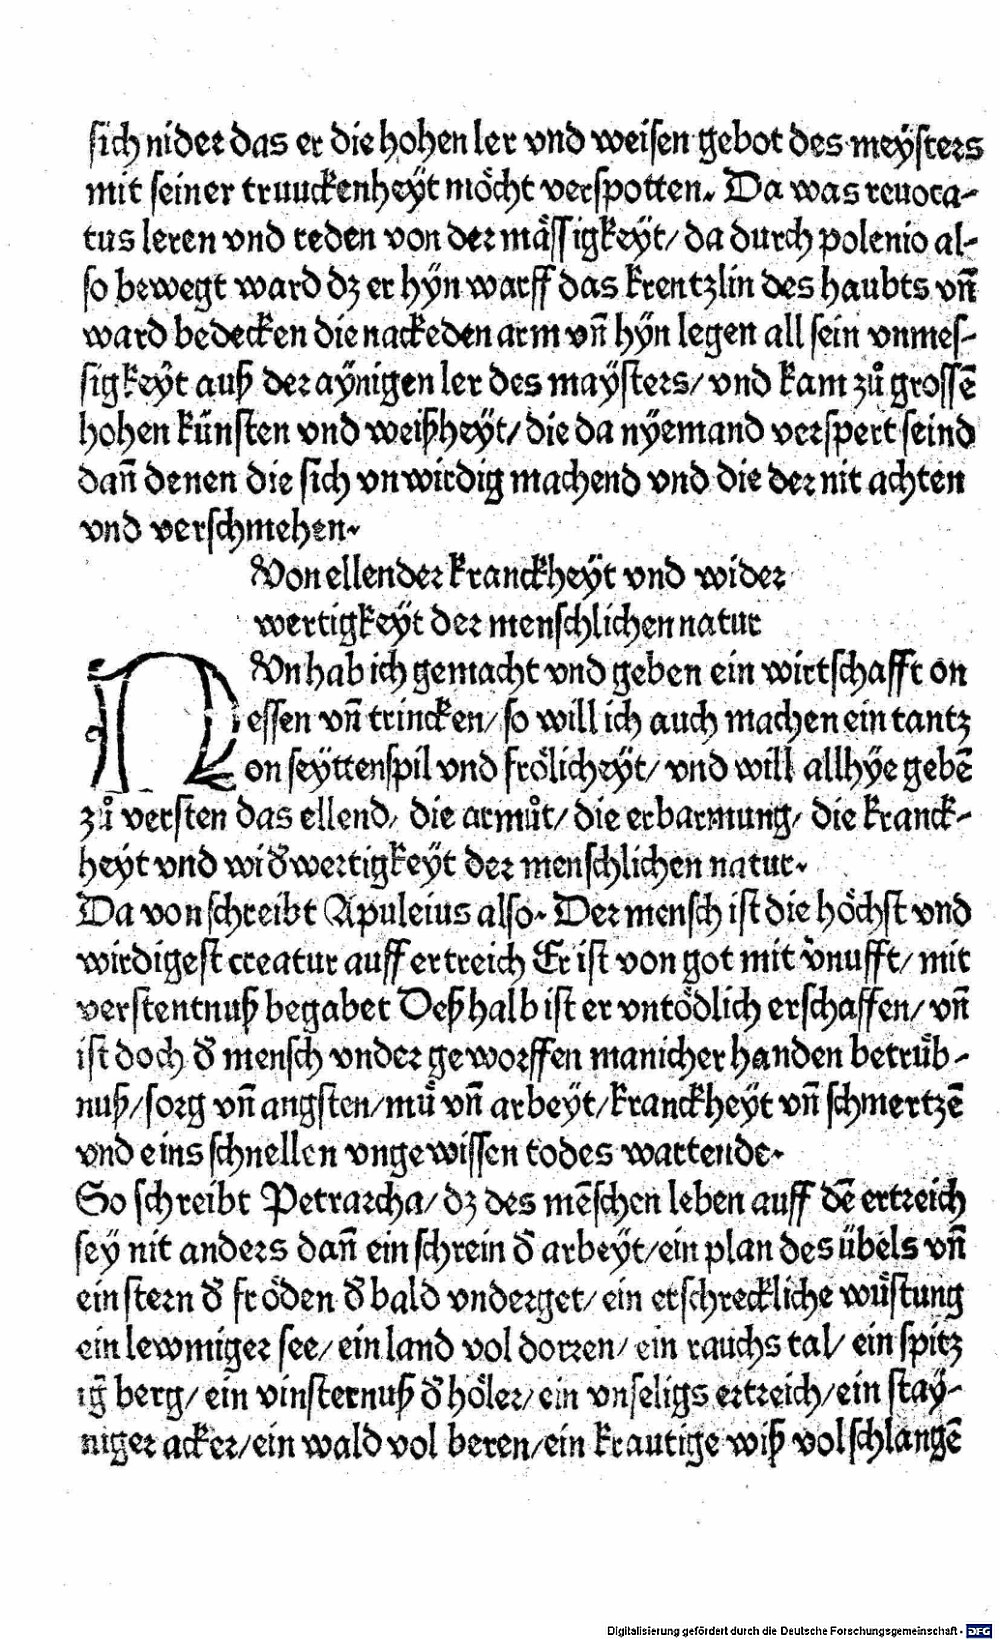 sich nider das er die hohen ler vnd weisen gebot des meÿsters
mit seiner truuckenheÿt möcht verspotten. Da was reuoca-
tus leren vnd reden von der mässigkeÿt/ da durch polenio al-
so bewegt ward dz er hÿn warff das krentzlin des haubts vñ
ward bedecken die nackeden arm vñ hÿn legen all sein vnmes-
sigkeÿt auß der aÿnigen ler des maÿsters/ vnd kam zů grossē
hohen künsten vnd weißheÿt/ die da nÿemand verspert seind
dañ denen die sich vnwirdig machend vnd die der nit achten
vnd verschmehen.
Von ellender kranckheÿt vnd wider
wertigkeÿt der menschlichen natur
NVn hab ich gemacht vnd geben ein wirtschafft on
essen vñ trincken/ so will ich auch machen ein tantz
on seÿttenspil vnd frölicheÿt/ vnd will allhÿe gebē
zů versten das ellend, die armůt/ die erbarmung/ die kranck-
heÿt vnd wid̕wertigkeÿt der menschlichen natur.
Da von schreibt Apuleius also. Der mensch ist die höchst vnd
wirdigest creatur auff ertreich Er ist von got mit v̄nufft/ mit
verstentnuß begabet Deßhalb ist er vntödlich erschaffen/ vñ
ist doch d̕ mensch vnder geworffen manicher handen betrüb-
nuß/ sorg vñ angsten/ mü vñ arbeÿt/ kranckheÿt vñ schmertzē
vnd eins schnellen vngewissen todes wartende.
So schreibt Petrarcha/ dz des mēschen leben auff dē ertreich
seÿ nit anders dañ ein schrein d̕ arbeÿt/ ein plan des übels vñ
ein stern d̕ fröden d̕ bald vnderget/ ein erschreckliche wüstung
ein lewmiger see/ ein land vol dorren/ ein rauchs tal/ ein spitz
iḡ berg/ ein vinsternuß d̕ höler/ ein vnseligs ertreich/ ein staÿ-
niger acker/ ein wald vol beren/ ein krautige wiß vol schlangē
Digitalisierung gefördert durch die Deutsche Forschungsgemeinschaft - DFG